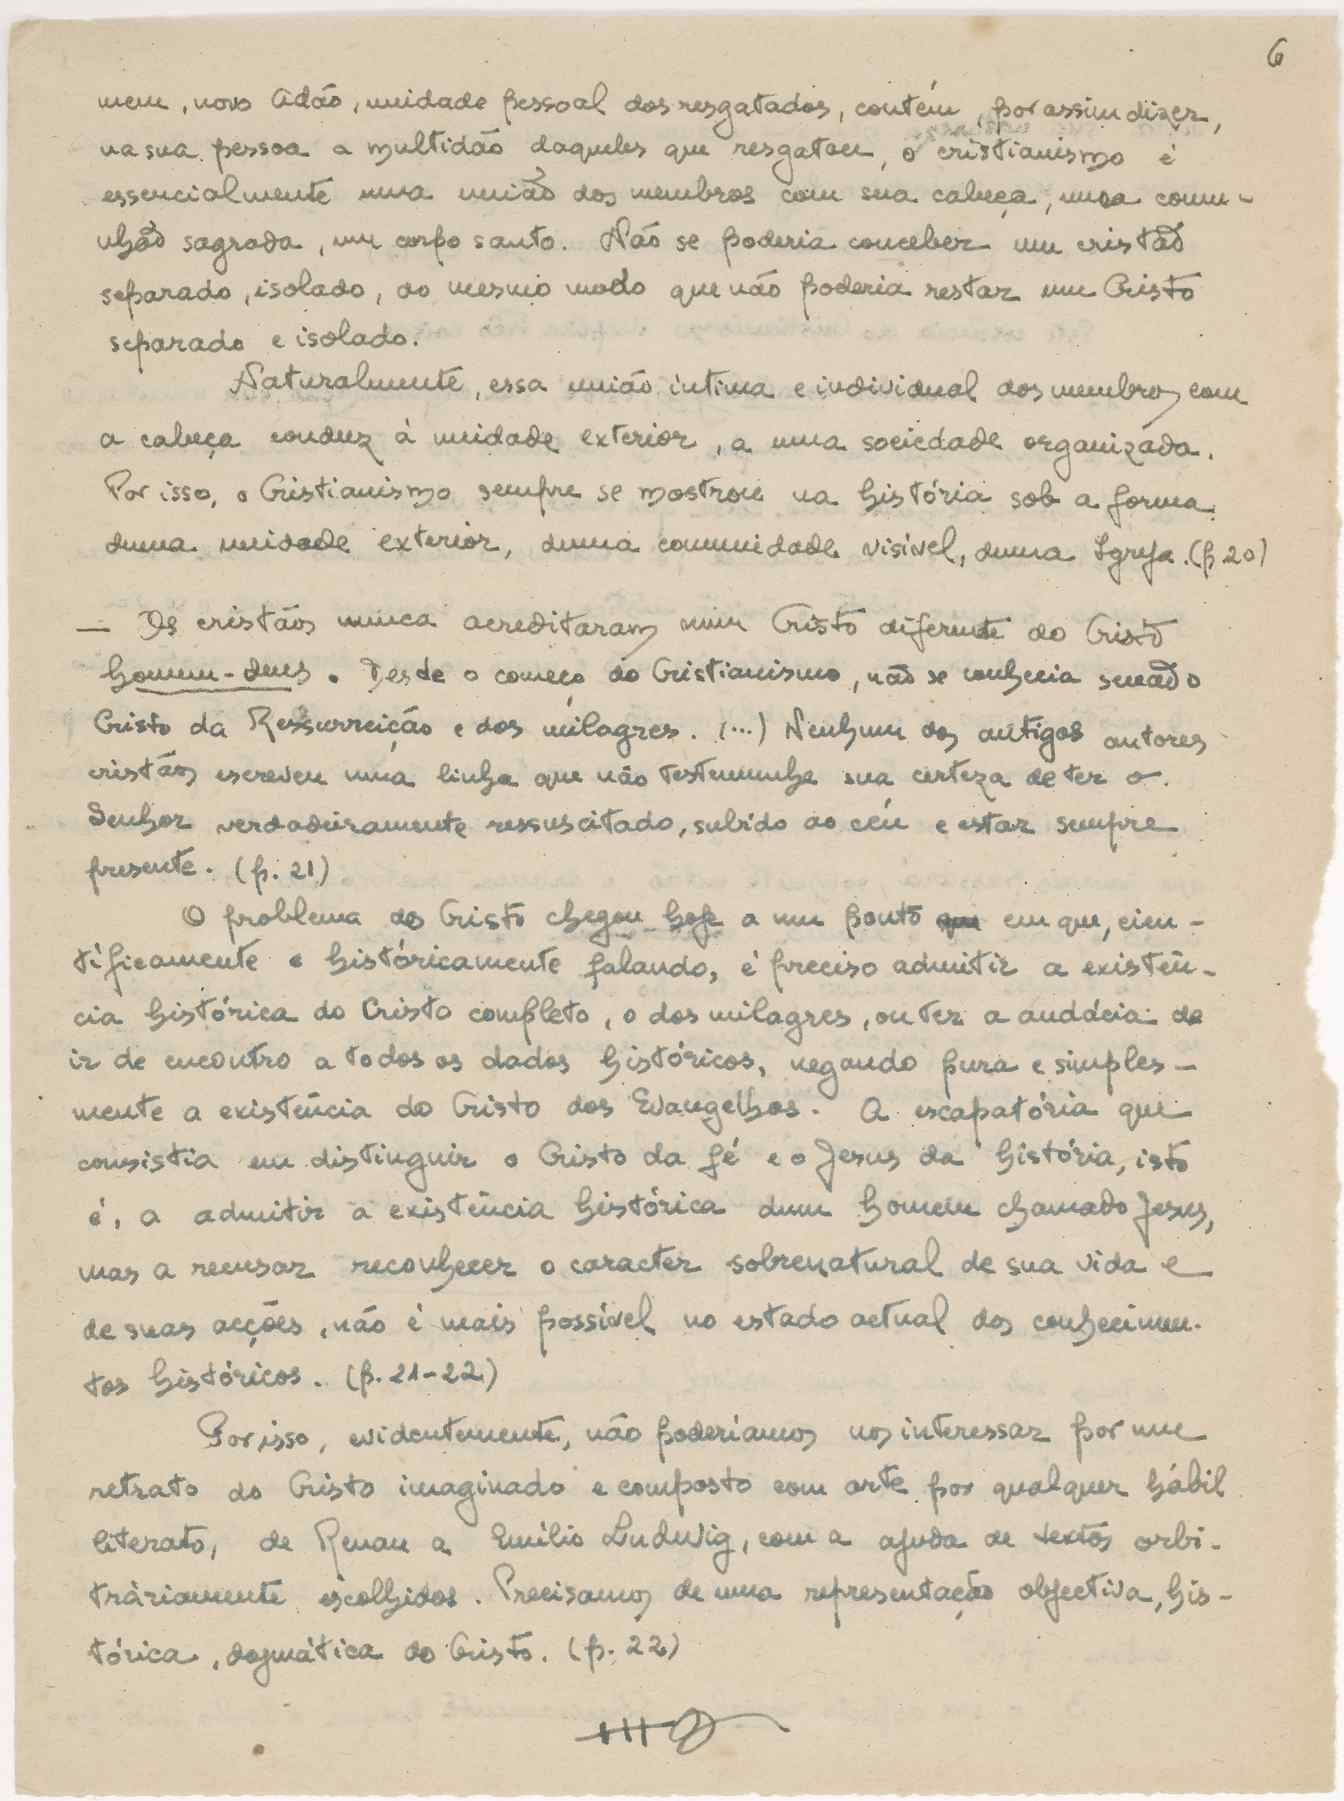 6
mem, novo Adão, unidade pessoal dos resgatados, contém, por assim dizer,
na sua pessoa a multidão daqueles que resgatou, o cristianismo é
essencialmente uma união dos membros com sua cabeça, uma comu-
nhão sagrada, um corpo santo. Não se poderia conceber um cristão
separado, isolado, do mesmo modo que não poderia restar um Cristo
separado e isolado.
Naturalmente, essa união íntima e individual dos membros com
a cabeça conduz à unidade exterior, a uma sociedade organizada.
Por isso, o Cristianismo sempre se mostrou na história sob a forma
duma unidade exterior, duma comunidade visível, duma Igreja. (p 20)
— Os cristãos nunca acreditaram num Cristo diferente do Cristo
homem-deus. Desde o começo do Cristianismo, não se conhecia senão o
Cristo da Ressurreição e dos milagres. (...) Nenhum dos antigos autores
cristãos escreveu uma linha que não testemunhe sua certeza de ter o
Senhor verdadeiramente ressuscitado, subido ao céu e estar sempre
presente. (p. 21)
O problema do Cristo chegou hoje a um ponto que em que, cien-
tíficamente e históricamente falando, é preciso admitir a existên-
cia histórica do Cristo completo, o dos milagres, ou ter a audácia de
ir de encontro a todos os dados históricos, negando pura e simples-
mente a existência do Cristo dos Evangelhos. A escapatória que
consistia em distinguir o Cristo da fé e o Jesus da história, isto
é, a admitir a existência histórica dum homem chamado Jesus,
mas a recusar reconhecer o caracter sobrenatural de sua vida e
de suas acções, não é mais possível no estado actual dos conhecimen-
tos históricos. (p. 21-22)
Por isso, evidentemente, não poderíamos nos interessar por um
retrato do Cristo imaginado e composto com arte por qualquer hábil
literato, de Renan a Emílio Ludwig, com a ajuda de textos arbi-
tràriamente escolhidos. Precisamos de uma representação objectiva, his-
tórica, dogmática do Cristo. (p. 22)